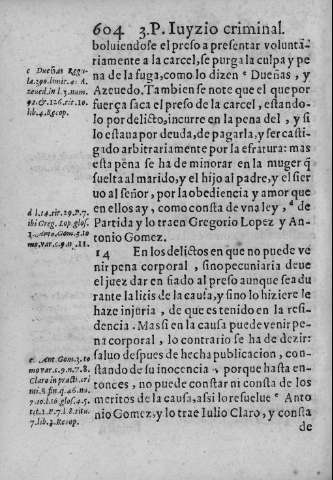 604 3.P. Iuyzio criminal.
boluiendose el preso a presentar voluntã-
riamente a la carcel, se purga la culpa y pe
na de la fuga, como lo dizen ͨ Dueñas, y
Azeuedo. Tambien se note que el que por
fuerça saca el preso de la carcel, estando-
lo por delicto, incurre en la pena del, y si
lo estaua por deuda, de pagarla, y ser casti-
gado arbitrariamente por la efratura: mas
esta pena se ha de minorar en la muger q̃
suelta al marido, y el hijo al padre, y el sier
uo al señor, por la obediencia y amor que
en ellos ay, como consta de vna ley, ͩ de
Partida y lo traen Gregorio Lopez y An-
tonio Gomez.
14 En los delictos en que no puede ve
nir pena corporal, sino pecuniaria deue
el juez dar en fiado al preso aunque sea du
rante la litis de la causa, y sino lo hiziere le
haze injuria, de que es tenido en la resi-
dencia. Mas si en la causa puede venir pe-
na corporal, lo contrario se ha de dezir:
saluo despues de hecha publicacion, con-
stando de su inocencia, porque hasta en-
tonces, no puede constar ni consta de los
meritos de la causa, assi lo resuelue ͤ Anto
nio Gomez, y lo trae Iulio Claro, y consta
de
c Dueñas Regu
la.290.limit.4. A.
zeued. in l.3. num.
d l.14.tit.29.P.7.
ibi Greg. Lop. glos.
e. Ant. Gom. 3. to
mo var. c. 9. n. 7. 8.
Claro in pract. cri
7. lib. 3. Recop.